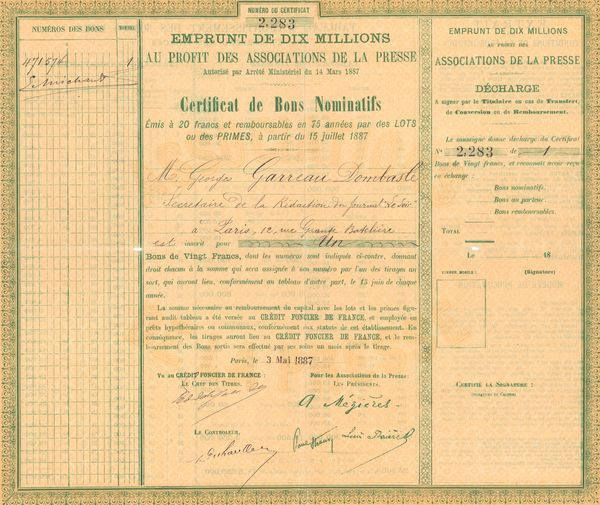 NUMÉRO DU CERTIFICAT
2,283
NUMÉROS DES BONS
NOMBRE
471574
1
EMPRUNT DE DIX MILLIONS
AU PROFIT DES ASSOCIATIONS DE LA PRESSE
Autorisé par Arrêté Ministériel du 14 Mars 1887
Certificat de Bons Nominatifs
Émis à 20 francs et remboursables en 75 années par des LOTS
ou des PRIMES, à partir du 15 juillet 1887
M. Georges Garreau Dombasle
Secrétaire de la Rédaction du Journal Le Soir
à Paris, 12, rue Grange Batelière
est inscrit pour Un
Bons de Vingt Francs, dont les numéros sont indiqués ci-contre, donnant
droit chacun à la somme qui sera assignée à son numéro par l'un des tirages au
sort, qui auront lieu, conformément au tableau d'autre part, le 15 juin de chaque
année.
La somme nécessaire au remboursement du capital avec les lots et les primes figu-
rant audit tableau a été versée au CRÉDIT FONCIER DE FRANCE, et employée en
prêts hypothécaires ou communaux, conformément aux statuts de cet établissement. En
conséquence, les tirages auront lieu au CRÉDIT FONCIER DE FRANCE, et le rem-
boursement des Bons sortis sera effectué par ses soins un mois après le tirage.
Paris, le 3 Mai 1887
Vu au CRÉDIT FONCIER DE FRANCE :
LE CHEF DES TITRES,
Pour les Associations de la Presse:
LES PRÉSIDENTS,
A Mézières
LE CONTROLEUR,
EMPRUNT DE DIX MILLIONS
AU PROFIT DES
ASSOCIATIONS DE LA PRESSE
DÉCHARGE
A signer par le Titulaire en cas de Transfert,
de Conversion ou de Remboursement.
Le soussigné donne décharge du Certificat
N° 2,283 de 1
Bons de Vingt francs, et reconnait avoir reçu
en échange :
Bons nominatifs.
Bons au porteur.
Bons remboursables.
TOTAL
Le 18
TIMBRE MOBILE :
(Signature)
CERTIFIÉ LA SIGNATURE :